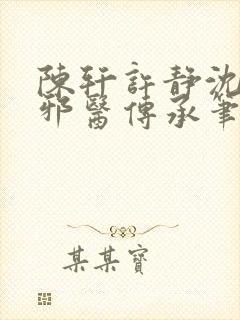 陳軒許靜沈
邪醫傳承筆
某某寶